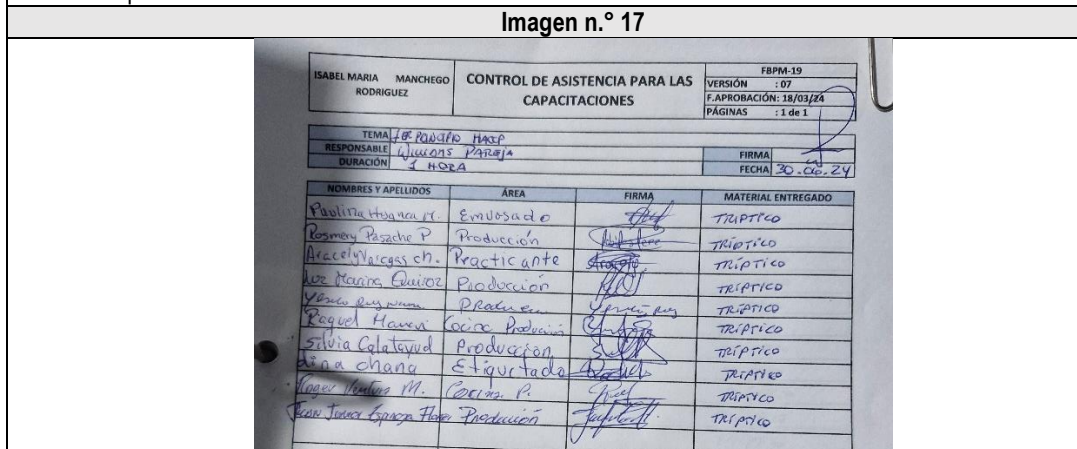 Imagen n.° 17
ISABEL MARIA MANCHEGO RODRIGUEZ
CONTROL DE ASISTENCIA PARA LAS CAPACITACIONES
FBPM-19
VERSIÓN : 07
F.APROBACIÓN: 18/03/24
PÁGINAS : 1 de 1
TEMA HACCP
RESPONSABLE PAREJA
DURACIÓN 1 HORA
FIRMA
FECHA 30.06.24
NOMBRES Y APELLIDOS ÁREA FIRMA MATERIAL ENTREGADO
Paulina Huanca M. Envasado TRIPTICO
Rosmery Pasache P Producción TRÍPTICO
Aracely Vargas ch. Practicante TRÍPTICO
Luz Marina Quiroz Producción TRÍPTICO
TRÍPTICO
Raquel Mamani Cocina Producción TRÍPTICO
Silvia Calatayud Producción TRÍPTICO
dina chana Etiquetado TRIPTICO
M. Cocina P. TRIPTICO
Junior Espinoza Flores Producción TRÍPTICO